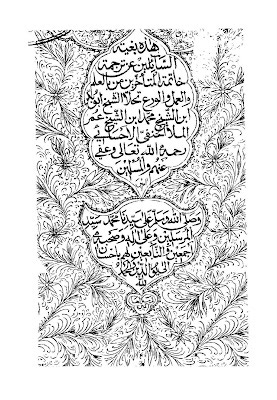 هذه بغية
السائلين عن ترجمة
خاتمة المتأخرين من بالعلم
والعمل والورع تحلا الشيخ ابو بكر
ابن الشيخ محمد ابن الشيخ عمر
الملا الحنفي الاحسائي
رحمه الله تعالى وعفى
عنهم والمسلمين
وصل الله وسلم على سيدنا محمد سيد
المرسلين وعلى آله وصحبه
اجمعين والتابعين لهم باحسان
الى يوم الدين